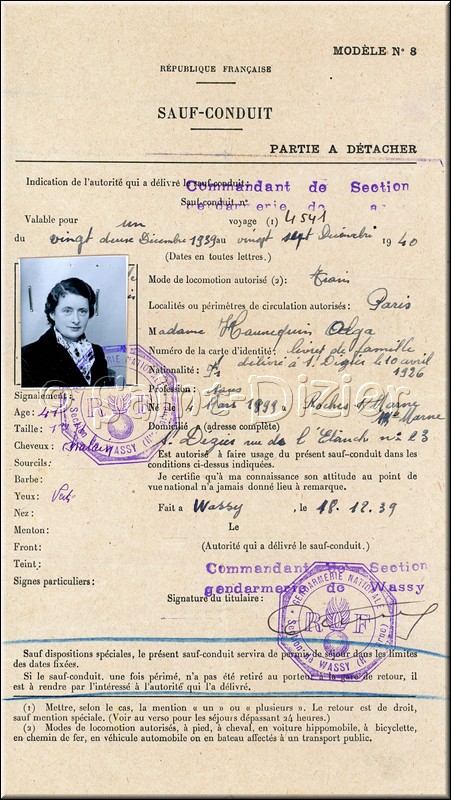 MODÈLE N° 8
RÉPUBLIQUE FRANÇAISE
SAUF-CONDUIT
PARTIE A DÉTACHER
Indication de l'autorité qui a délivré le sauf-conduit:
Commandant de Section
Sauf-conduit n°
Valable pour un voyage (1) 4541
du vingt deux Décembre 1939 au vingt sept Décembre 1940
(Dates en toutes lettres.)
Mode de locomotion autorisé (2): train
Localités ou périmètres de circulation autorisés: Paris
Madame Hannequin Olga
Numéro de la carte d'identité: livret de famille
délivré à St Dizier le 10 avril 1926
Nationalité: Fse
Profession: sans
Né le 4 Mars à Roches s/ Marne
Hte Marne
Domicile (adresse complète)
St Dizier rue de l'Etanch n° 23
Est autorisé à faire usage du présent sauf-conduit dans les
conditions ci-dessus indiquées.
Je certifie qu'à ma connaissance son attitude au point de
vue national n'a jamais donné lieu à remarque.
Fait à Wassy, le 18.12.39
Le
(Autorité qui a délivré le sauf-conduit.)
Commandant de Section
gendarmerie de Wassy
Signature du titulaire:
GENDARMERIE NATIONALE
RF
WASSY
Signalement:
Age: 41
Taille:
Cheveux: chatain
Sourcils:
Barbe:
Yeux:
Nez:
Menton:
Front:
Teint:
Signes particuliers:
© Saint-Dizier
Sauf dispositions spéciales, le présent sauf-conduit servira de permis de séjour dans les limites
des dates fixées.
Si le sauf-conduit, une fois périmé, n'a pas été retiré au porteur à la gare de retour, il
est à rendre par l'intéressé à l'autorité qui l'a délivré.
(1) Mettre, selon le cas, la mention « un » ou « plusieurs ». Le retour est de droit,
sauf mention spéciale. (Voir au verso pour les séjours dépassant 24 heures.)
(2) Modes de locomotion autorisés, à pied, à cheval, en voiture hippomobile, à bicyclette,
en chemin de fer, en véhicule automobile ou en bateau affectés à un transport public.